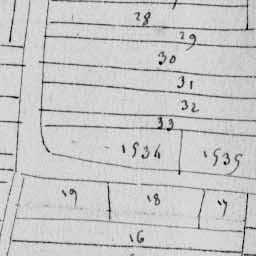 28
29
30
31
32
33
1934 1935
19 18 17
16